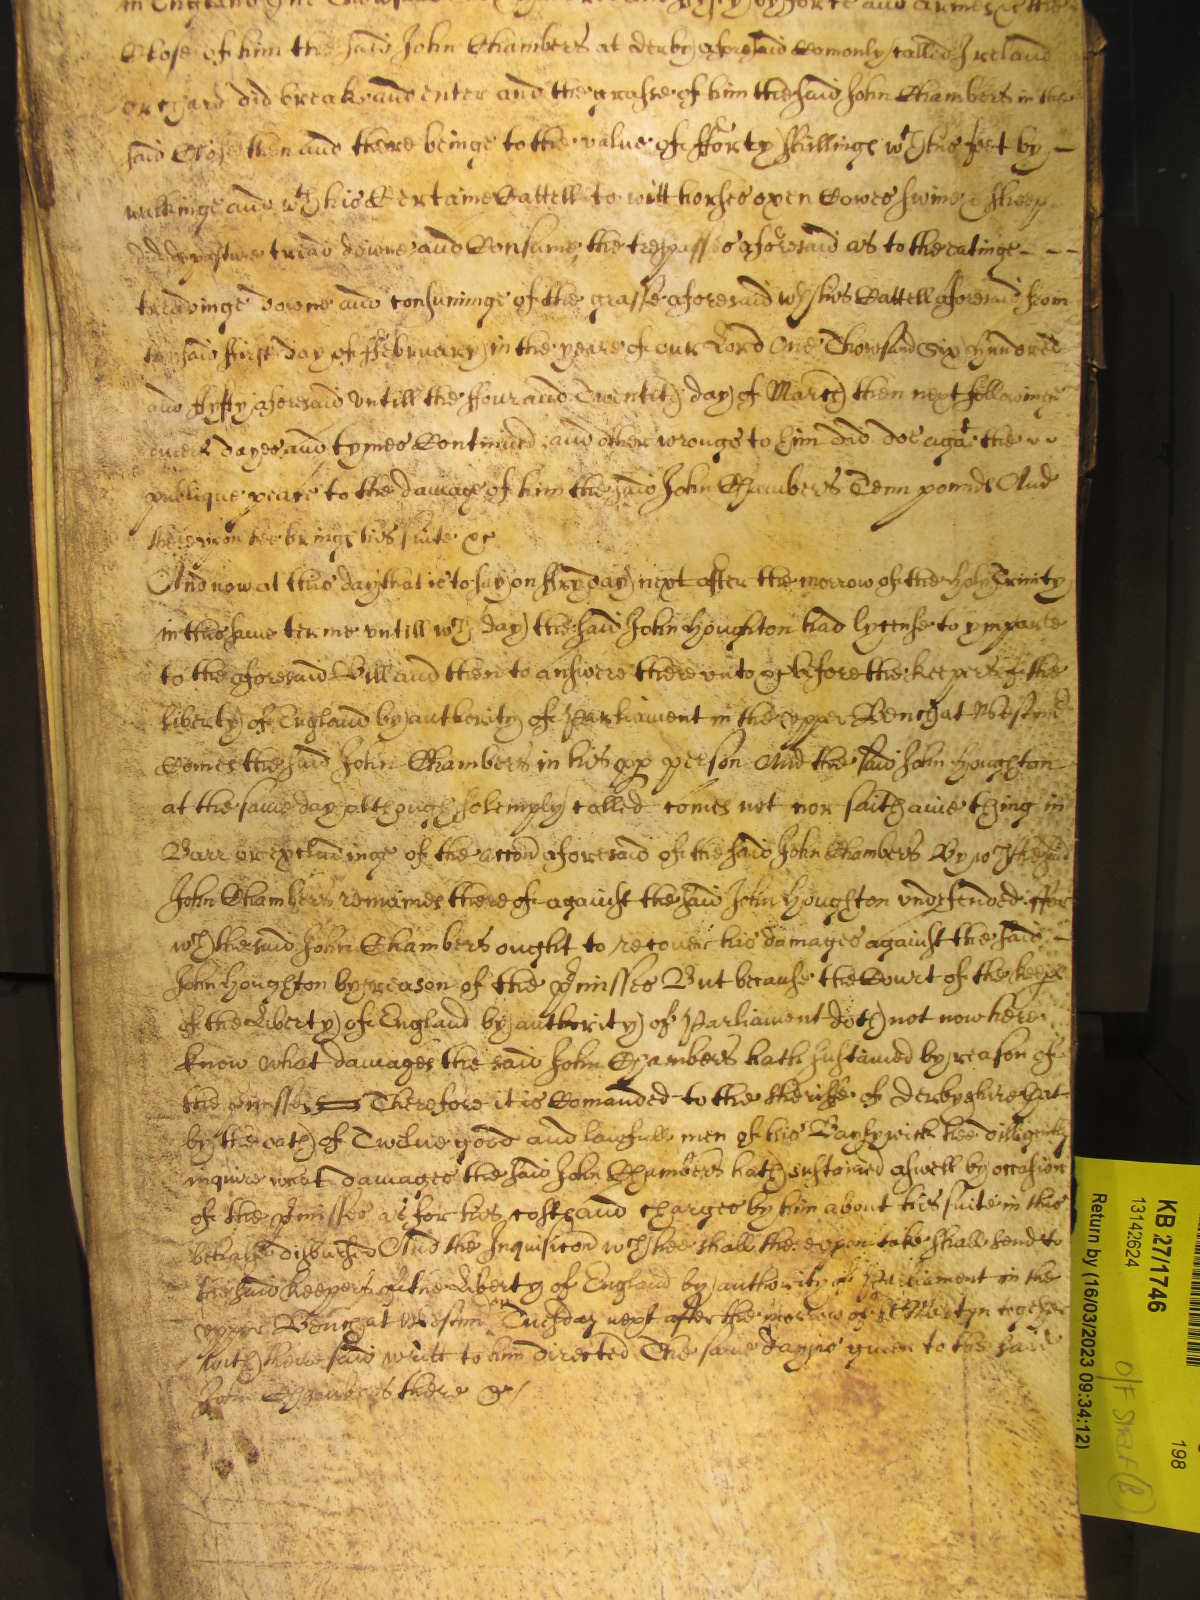 in England One Thowsand and by force and armes the
Close of him the said John Chambers at Derby aforesaid Comonly called Ireland
orchard did breake and enter and the grasse of him the said John Chambers in the
said Close then and there beinge to the value of fforty shillings wth his feet by
walkinge and wth his Certaine Cattell to witt horses oxen Cowes swine & sheep
did depasture tread downe and Consume, the trespasse aforesaid as to the eatinge - - -
treadinge downe and consuminge of the grasse aforesaid wth his Cattell aforesaid from
the said ffirst day of ffebruary in the yeare of our Lord One Thowsand Six hundred
and ffyfty aforesaid vntill the ffour and Twentith day of March then next followinge
dayes and tymes Continued and other wrongs to him did doe agat the
publique peace to the damage of him the said John Chambers Tenn pounds And
therevpon hee brings his suite &c
And now at this day that is to say on ffryday next after the morrow of the holy Trinity
in this same terme vntill wch day the said John Houghton had lycense to ymparle
to the aforesaid Bill and then to answere therevnto &c before the keepers of the
liberty of England by authority of Parliament in the vpper Bench at Westmr
Comes the said John Chambers in his pp person And the said John Houghton
at the same day although solemply called comes not nor saith anie thing in
Barr or excludinge of the accon aforesaid of the said John Chambers By wch the said
John Chambers remaines thereof against the said John Houghton vndefended ffor
wch the said John Chambers ought to recouer his damages against the said -
John Houghton by reason of the pmisses But because the Court of the keeprs
of the Liberty of England by authority of Parliament doth not now here
know what damages the said John Chambers hath sustained by reason of
the pmisses Therefore it is Comanded to the Sheriffe of Derbyshire that
by the oath of Twelue good and lawfull men of his Baylywick hee diligently
inquire what damages the said John Chambers hath sustained aswell by occasion
of the pmisses as for his costs and charges by him about his suite in this
behalfe disbursed And the Inquisicon wch hee shall thereupon take shall send to
the said keepers of the Liberty of England by authority of Parliament in the
vpper Bench at Westmr on Tuesday next after the morrow of St Martyn together
with the said writt to him directed The same day is giuen to the said
John Chambers there &c
KB 27/1746
13142624
Return by (16/03/2023 09:34:12)
198
O/F